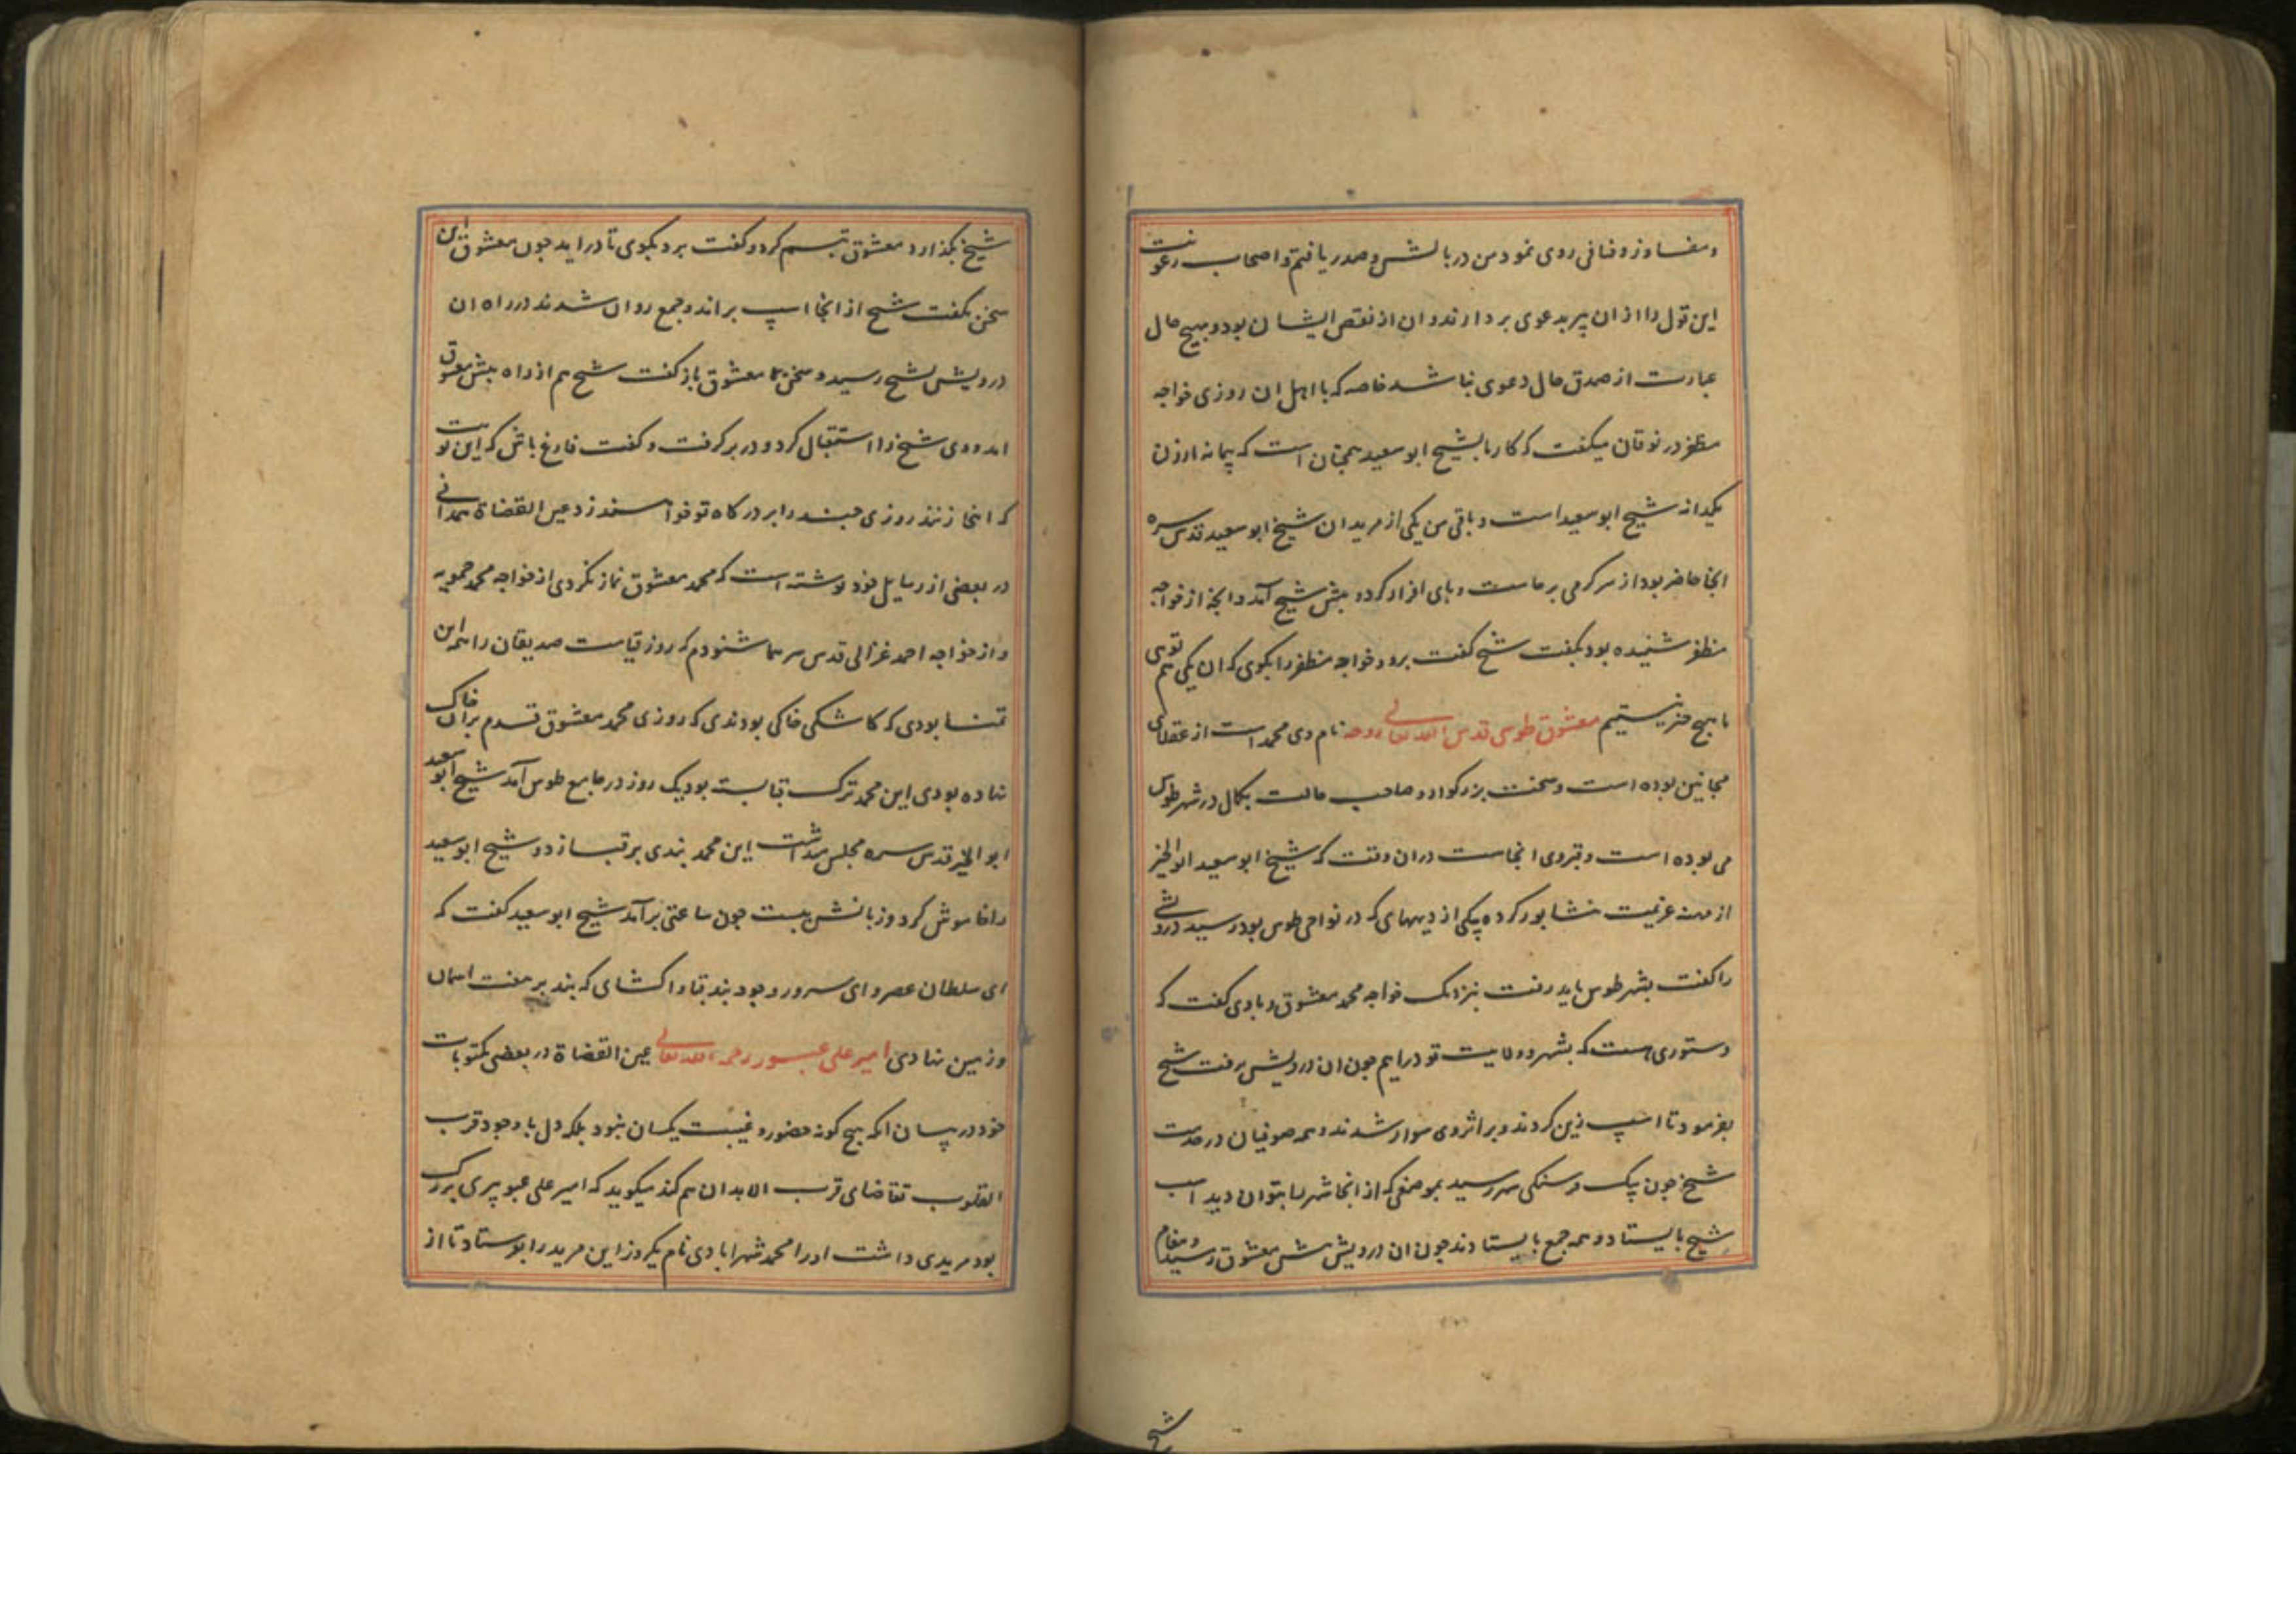 ومفاوز وفنافی روی نمود من در بالش و صدر یافتم و اصحاب رعونت
این قول را از ان پیر بدعوی بردارند و ان از نقص ایشان بود و هیچ حال
عبارت از صدق حال دعوی نباشد خاصه که با اهل ان روزی خواجه
مظفر در نوقان میکفت که کار ما بشیخ ابو سعید همچنان است که پیمانه ارزن
یکدانه شیخ ابو سعید است و باقی من یکی از مریدان شیخ ابو سعید قدس سره
انجا حاضر بود از سر کرمی برخاست و پای افزار کرد و پیش شیخ آمد و انچه از خواجه
مظفر شنیده بود بکفت شیخ کفت برو و خواجه مظفر را بکوی که ان یکی هم توی
ما هیچ چیز نیستیم معشوق طوسی قدس الله تعالی روحه نام وی محمد است از عقلای
مجانین بوده است و سخت بزرکوار و صاحب حالت بکمال در شهر طوس
می بوده است و قبر وی انجاست دران وقت که شیخ ابو سعید ابوالخیر
از مهنه عزیمت نشابور کرده بیکی از دیههای که در نواحی طوس بود رسید درویشی
را کفت بشهر طوس باید رفت نزدیک خواجه محمد معشوق و با وی کفت که
دستوری هست که بشهر و ولایت تو درایم چون ان درویش برفت شیخ
بفرمود تا اسپ زین کردند و بر اثر وی سوار شدند و همه صوفیان در خدمت
شیخ چون بیک فرسنکی شهر رسید بموضعی که از انجا شهر را بتوان دید اسب
شیخ بایستاد و همه جمع بایستادند چون ان درویش پیش معشوق رسید و پیغام
شیخ
شیخ بکذارد معشوق تبسم کرد و کفت برو بکوی تا دراید چون معشوق این
سخن بکفت شیخ از انجا اسپ براند و جمع روان شدند در راه ان
درویش بشیخ رسید و سخن معشوق باز کفت شیخ هم از راه پیش معشوق
امد و وی شیخ را استقبال کرد و در بر کرفت و کفت فارغ باش که این نوبت
که اینجا زنند روزی چند را بر درکاه تو خواهند زد عین القضاة همدانی
در بعضی از رسایل خود نوشته است که محمد معشوق نماز نکردی از خواجه محمد حمویه
و از خواجه احمد غزالی قدس سرهما شنودم که روز قیامت صدیقان را همه این
تمنا بودی که کاشکی خاکی بودندی که روزی محمد معشوق قدم بران خاک
نهاده بودی این محمد ترک قبا بسته بود یک روز در جامع طوس آمد شیخ ابو سعید
ابو الخیر قدس سره مجلس میداشت این محمد بندی بر قبا زد و شیخ ابو سعید
را خاموش کرد و زبانش ببست چون ساعتی برآمد شیخ ابو سعید کفت که
ای سلطان عصر و ای سرور وجود بند قبا وا کشای که بند بر هفت اسمان
و زمین نهادی امیر علی عبو رحمه الله تعالی عین القضاة در بعضی مکتوبات
خود در بیان انکه هیچ کونه حضور و غیبت یکسان نبود بلکه دل با وجود قرب
القلوب تقاضای قرب الابدان هم کند میکوید که امیر علی عبو پیری بزرک
بود مریدی داشت او را محمد شهرابادی نام یکروز این مرید را بفرستاد تا از